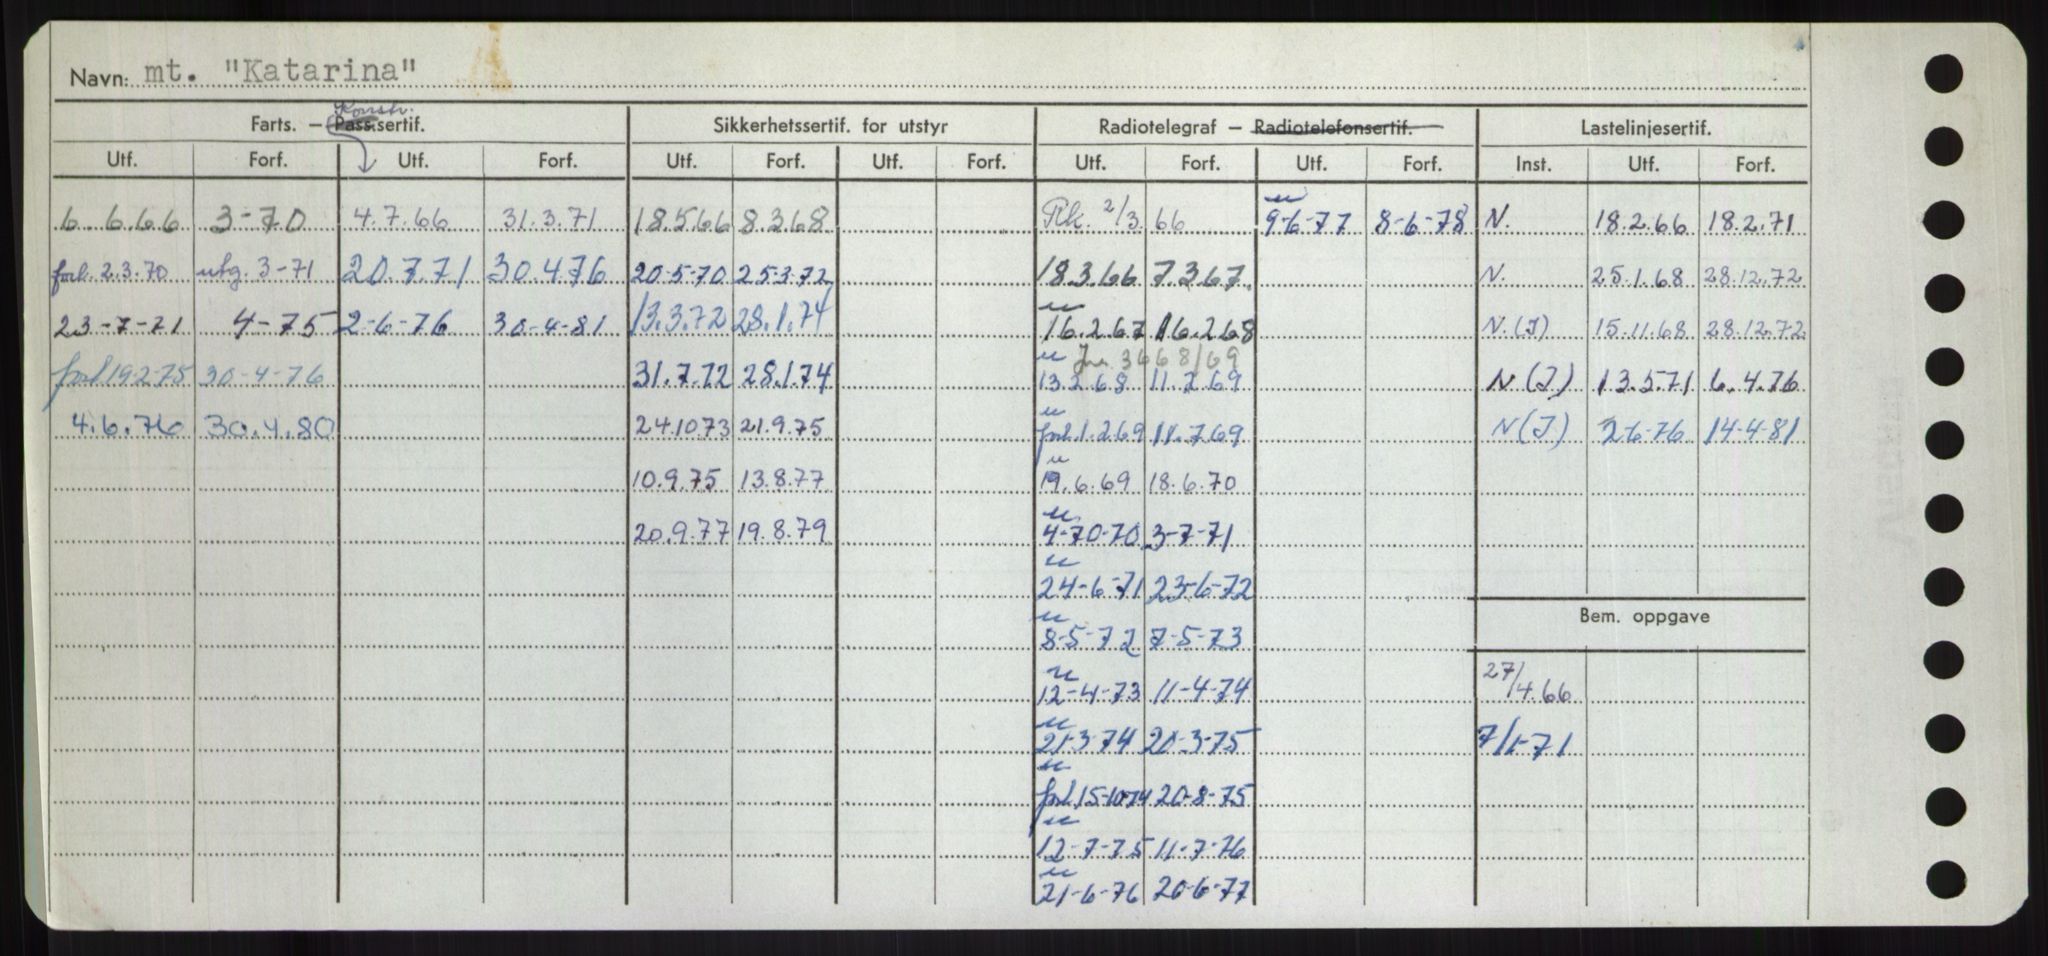 Navn: mt. "Katarina"
Konstr.
Farts. – Pass.sertif. Sikkerhetssertif. for utstyr Radiotelegraf – Radiotelefonsertif. Lastelinjesertif.
Utf. Forf. Utf. Forf. Utf. Forf. Utf. Forf. Utf. Forf. Utf. Forf. Inst. Utf. Forf.
6.6.66 3-70 4.7.66 31.3.71 18.5.66 8.3.68 Rk. 2/3.66 u 9-6-77 8-6-78 N. 18.2.66 18.2.71
forl. 2.3.70 utg. 3-71 20.7.71 30.4.76 20-5-70 25-3-72 18.3.66 7.3.67. N. 25.1.68 28.12.72
23-7-71 4-75 2-6-76 30-4-81 13.3.72 28.1.74 u 16.2.67 16.2.68 N.(I) 15.11.68 28.12.72
u Jnr. 3668/69
forl 19-2-75 30-4-76 31.7.72 28.1.74 13.2.68 11.2.69 N (I) 13.5.71 6.4.76
4.6.76 30.4.80 24.10.73 21.9.75 u forl. 1.2.69 11.7.69 N (I) 2-6-76 14-4-81
10.9.75 13.8.77 u 19.6.69 18.6.70
20.9.77 19.8.79 u 4-70-70 3-7-71
u 24-6-71 23-6-72
Bem. oppgave
u 8-5-72 7-5-73
u 12-4-73 11-4-74 27/4.66
u 21-3-74 20-3-75 7/1-71
u forl 15-10-74 20-8-75
u 12-7-75 11-7-76
u 21-6-76 20-6-77